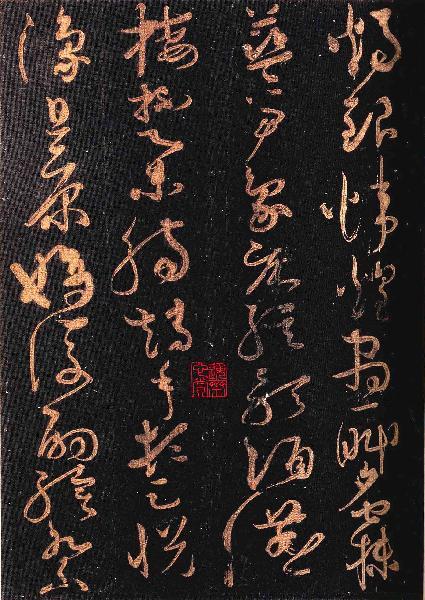 燭銀煒煌晝眠夕寐
藍筍象床絃歌酒讌
接杯舉觴矯手頓足悅
豫且康嫡後嗣續祭